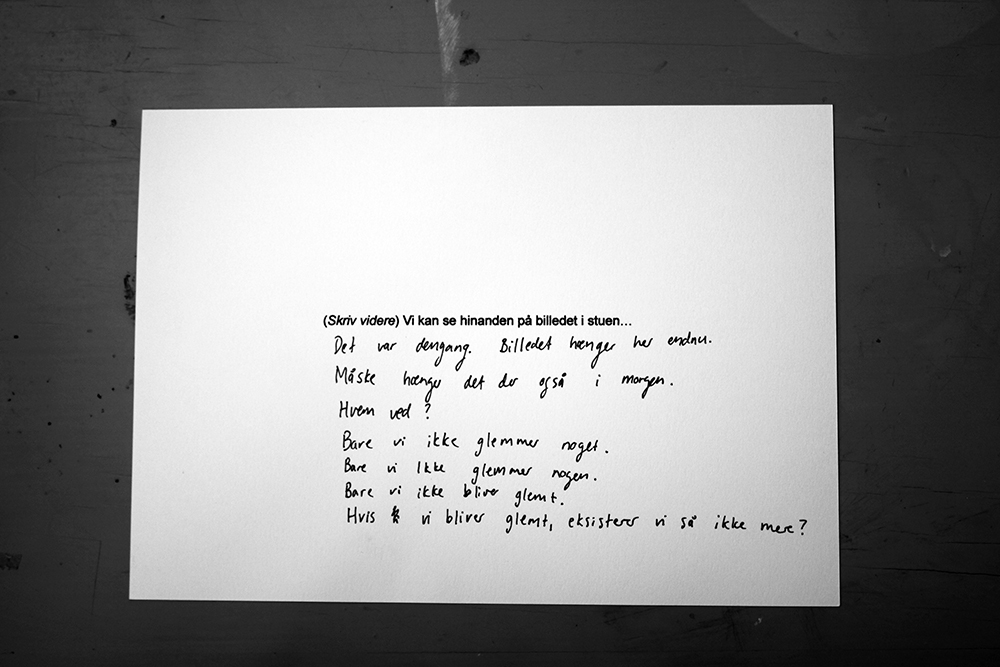 (Skriv videre) Vi kan se hinanden på billedet i stuen...
Det var dengang. Billedet hænger her endnu.
Måske hænger det der også i morgen.
Hvem ved?
Bare vi ikke glemmer noget.
Bare vi ikke glemmer nogen.
Bare vi ikke bliver glemt.
Hvis vi bliver glemt, eksisterer vi så ikke mere?